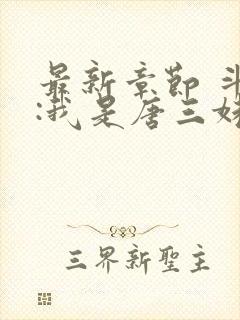 最新章節 斗
:我是唐三
三界新聖主